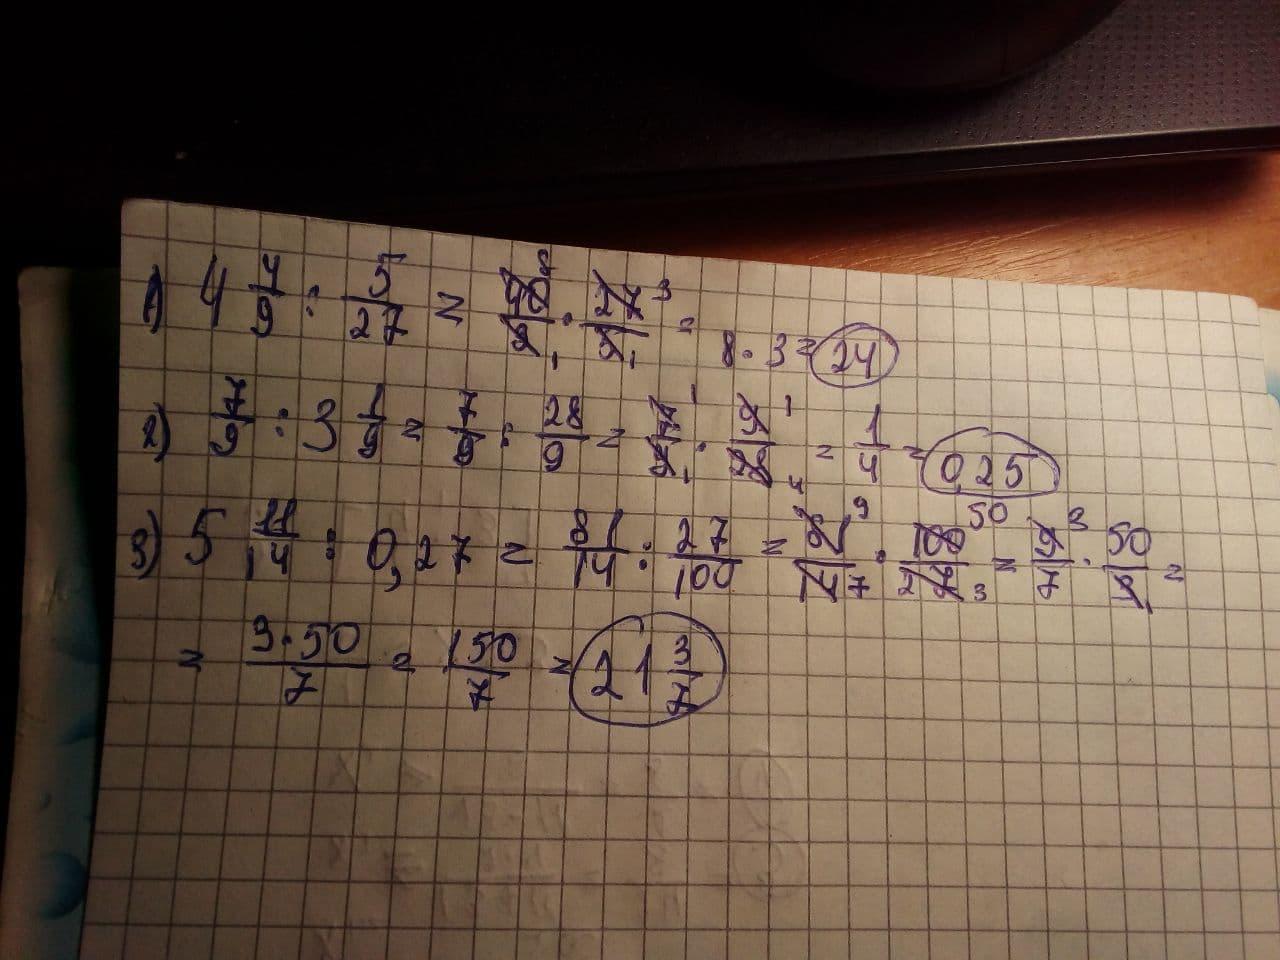 1) 4 4/9 : 5/27 = 40 8/9 1 · 27 3/5 1 = 8 · 3 = 24
2) 7/9 : 3 1/9 = 7/9 : 28/9 = 7 1/9 1 · 9 1/28 4 = 1/4 = 0,25
3) 5 11/14 : 0,27 = 81/14 : 27/100 = 81 9/14 7 · 100 50/27 3 = 9 3/7 · 50/3 1 =
= 3·50/7 = 150/7 = 21 3/7